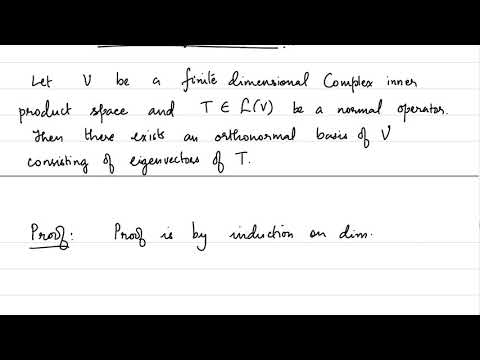 Let V be a finite dimensional Complex inner
product space and T ∈ L(V) be a normal operator.
Then there exists an orthonormal basis of V
consisting of eigenvectors of T.
Proof: Proof is by induction on dim.